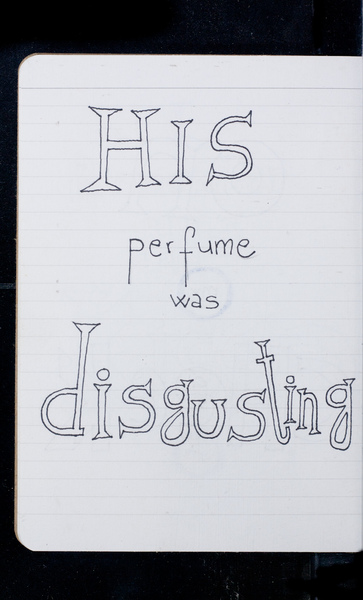 HIS
perfume
was
disgusting